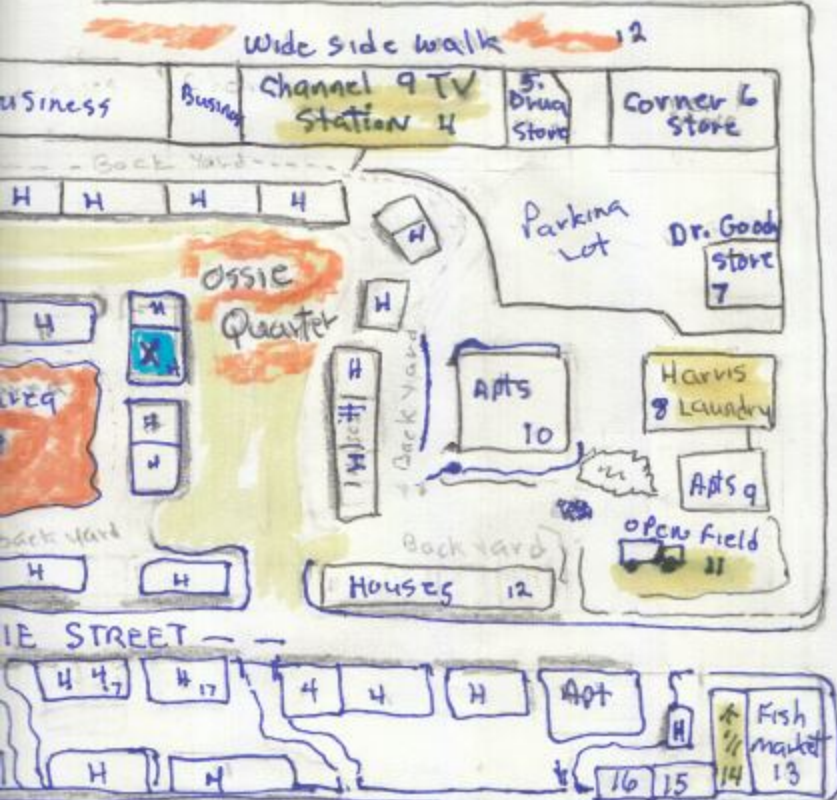 Wide side walk 12
usiness
Busines
Channel 9 TV
Station 4
5.
Drug
Store
Corner 6
Store
Back Yard
H
H
H
H
H
Parking
Lot
Dr. Good
Store
7
Ossie
Quarter
H
H
H
X H
area
H
H
H
H
H
Back Yard
Apts
10
Harris
8 Laundry
Apts 9
back yard
Back yard
open field
11
H
H
Houses 12
IE STREET
H H 17
H 17
H
H
H
Apt
H
Fish
market
13
14
H
H
16
15